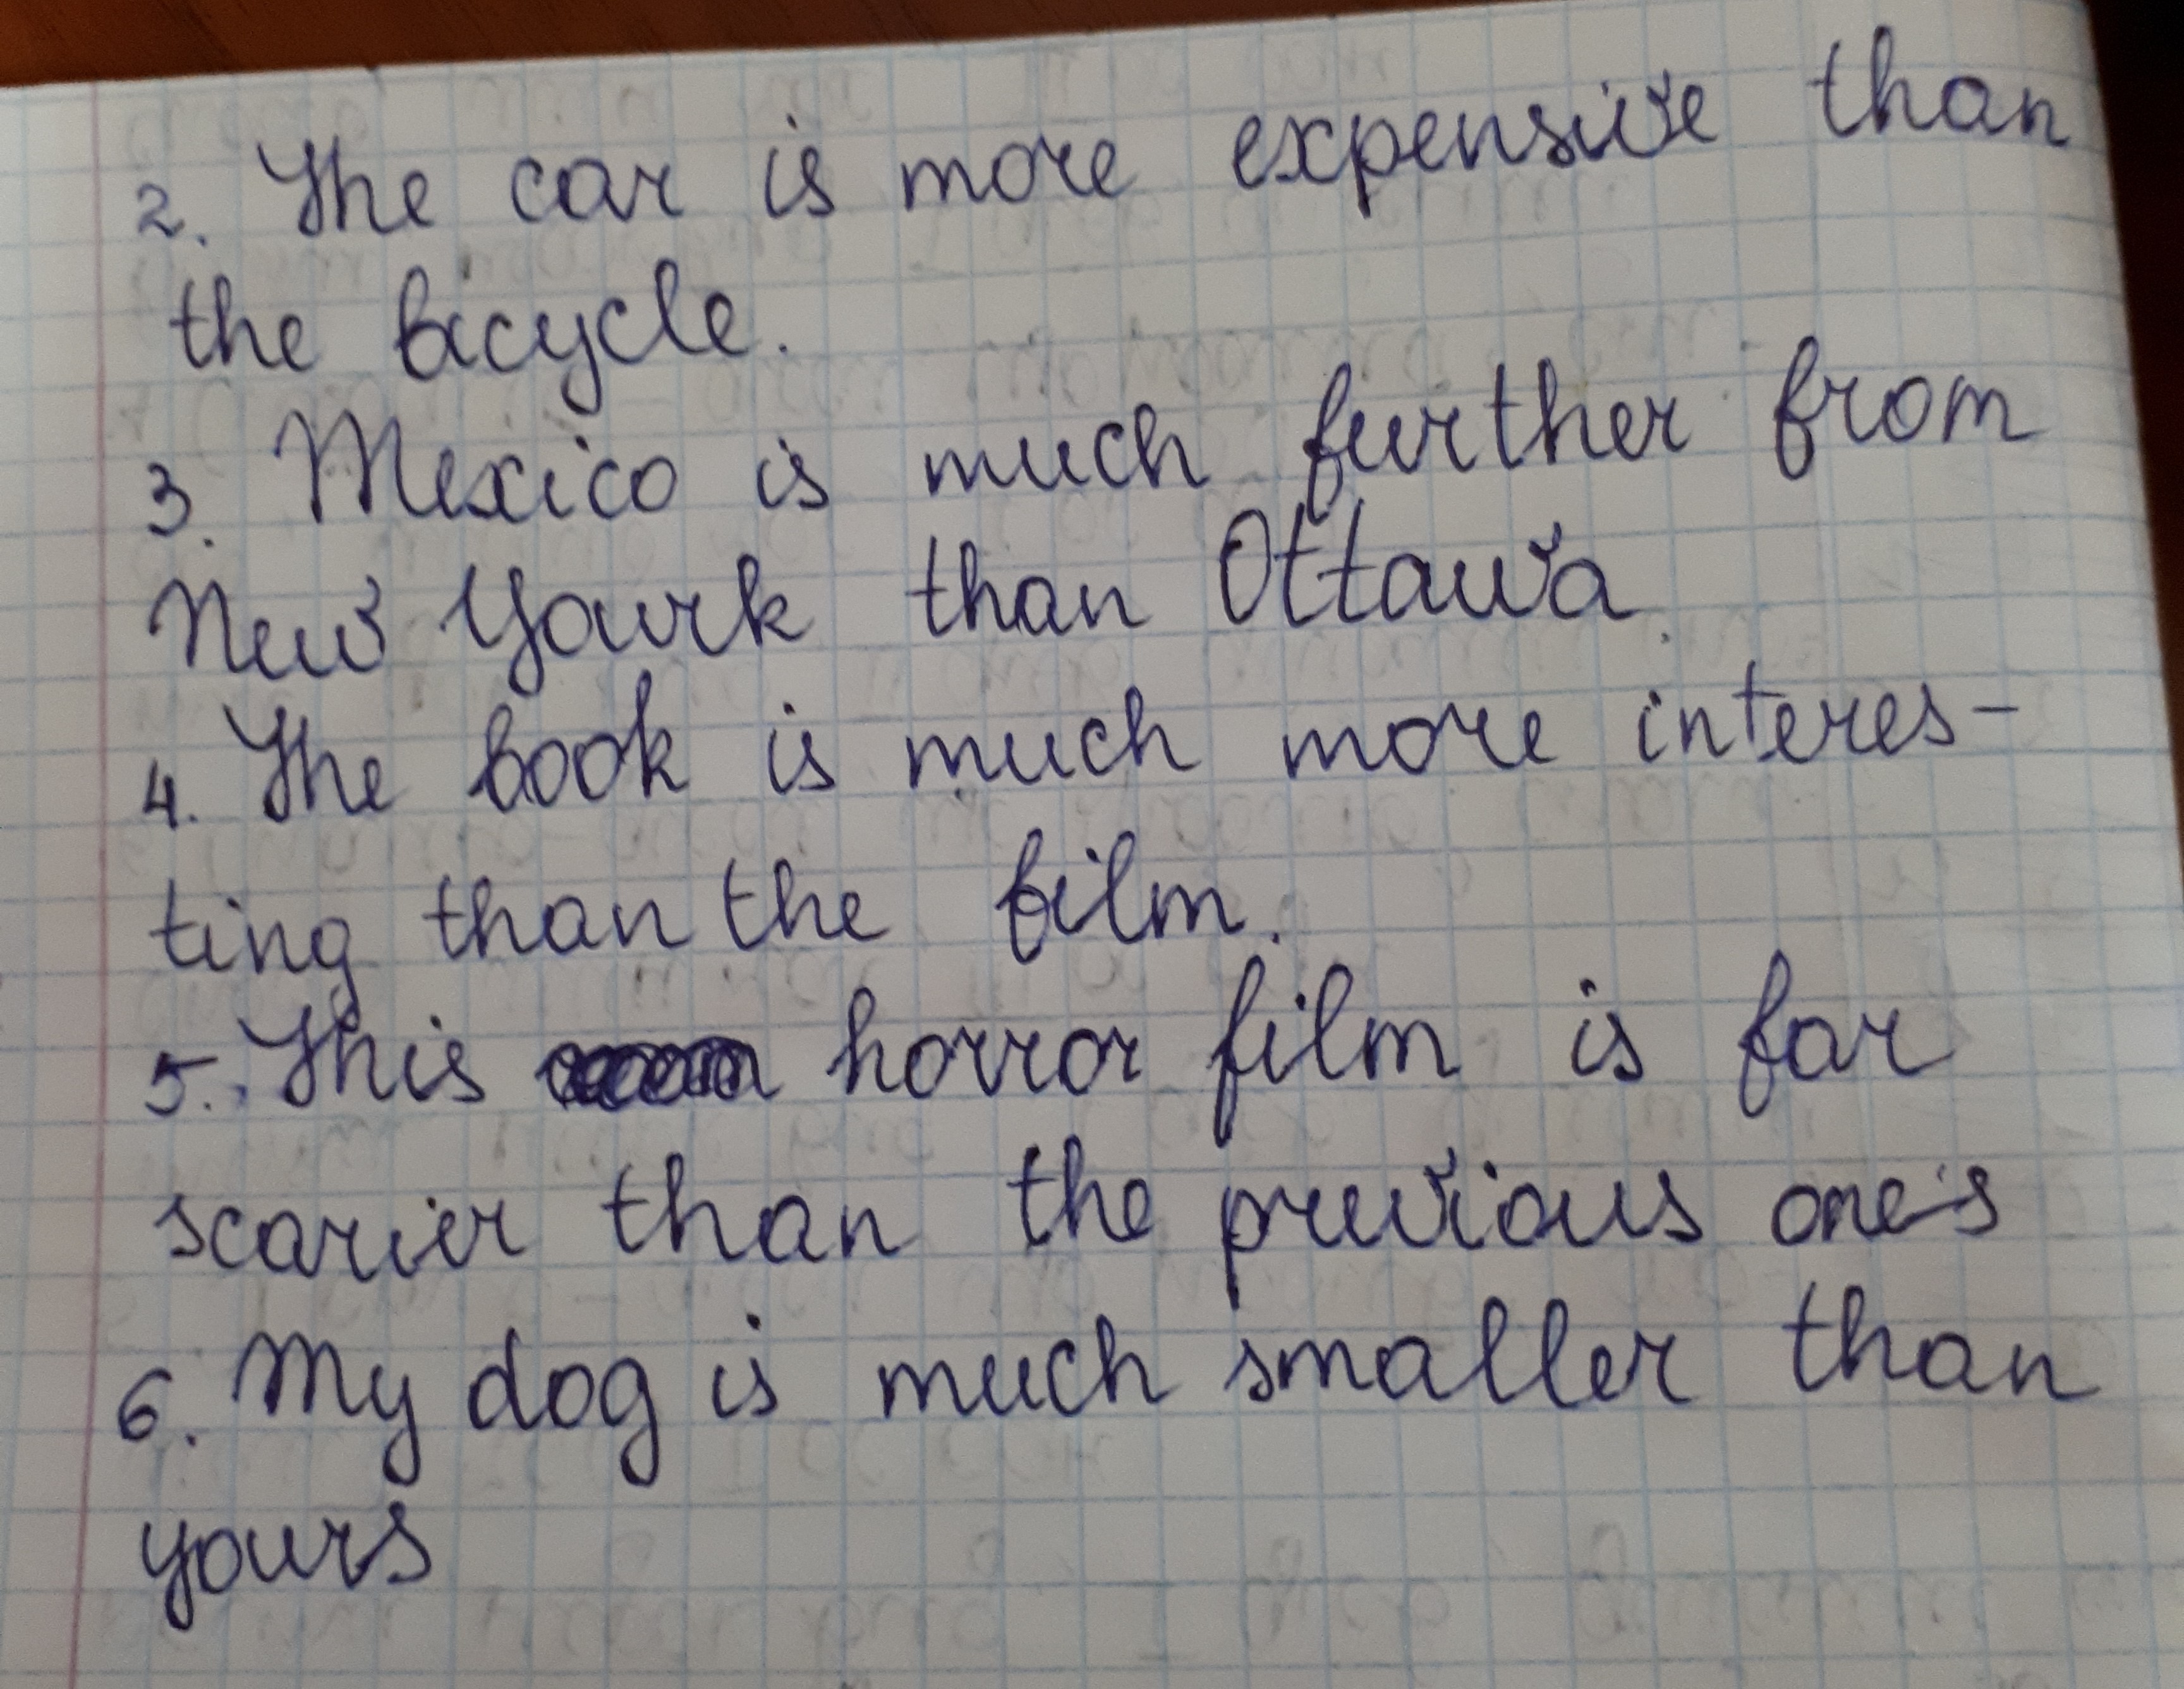 2. The car is more expensive than
the bicycle.
3. Mexico is much further from
New Yourk than Ottawa.
4. The book is much more interes-
ting than the film.
5. This horror film is far
scarier than the previous one's
6. My dog is much smaller than
yours